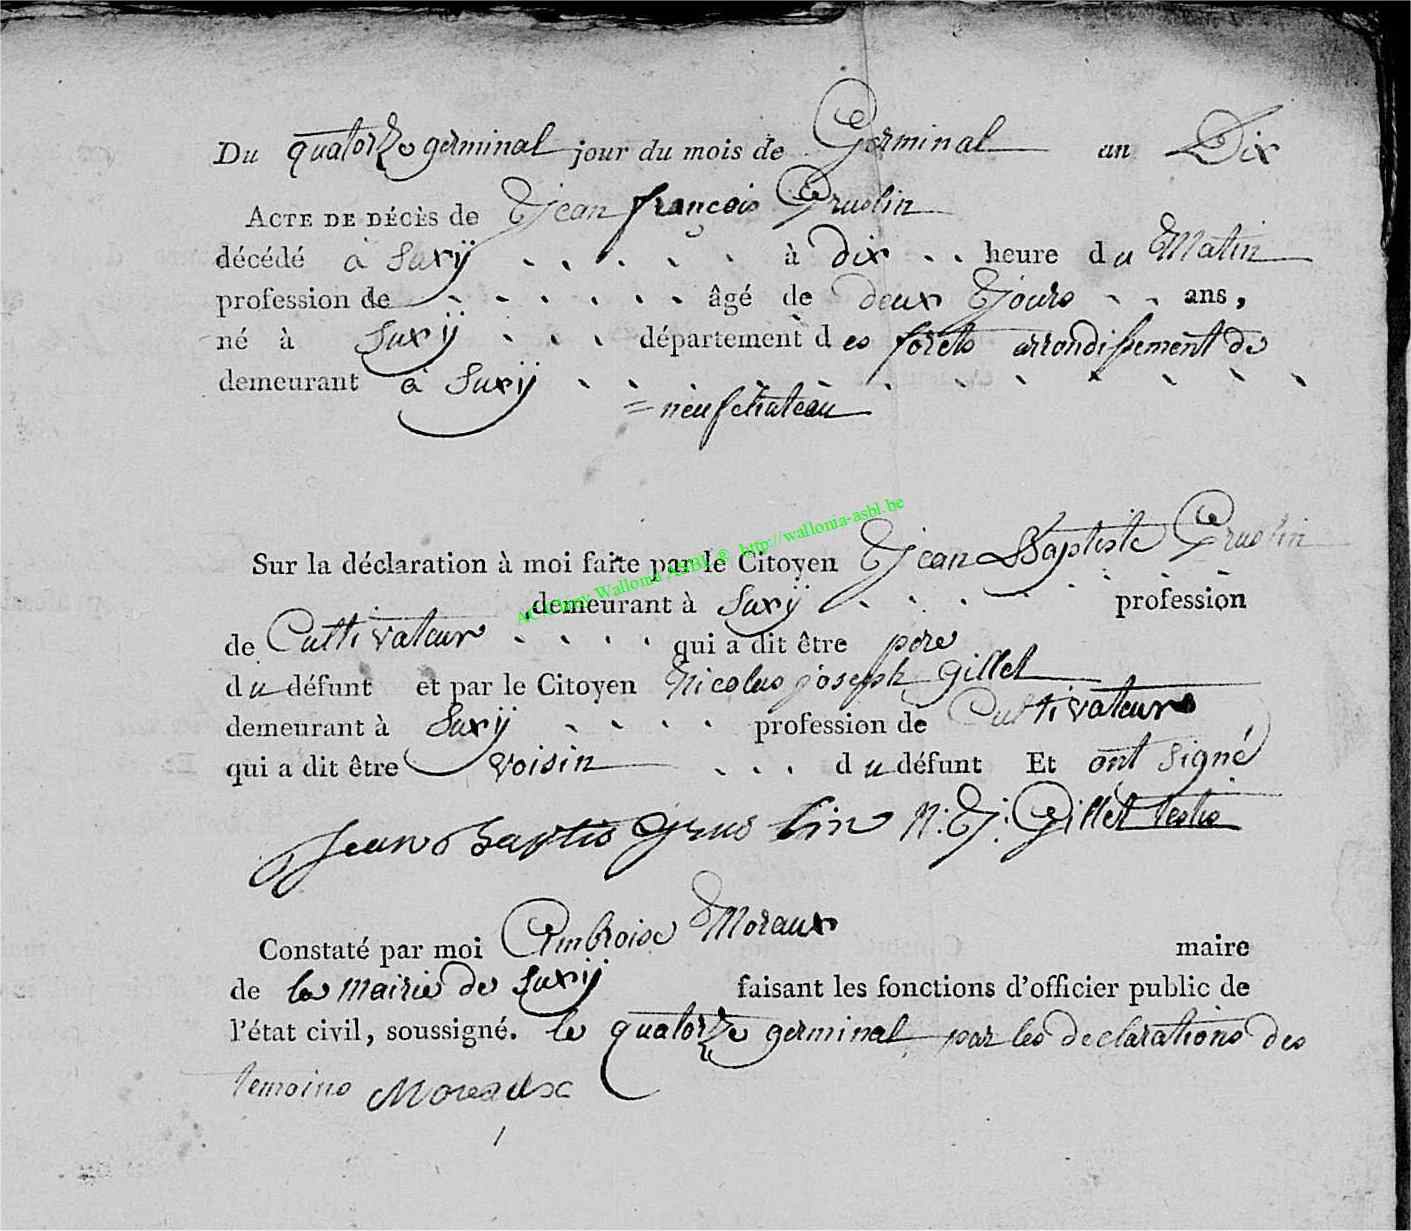 Du quatorze germinal jour du mois de Germinal an Dix
ACTE DE DÉCÈS de Jean françois Gruslin
décédé à Suxÿ . . . . . . à dix . . heure du Matin
profession de . . . . . . . âgé de deux Jours . . ans,
né à Suxÿ . . . département des forets arrondissement de
demeurant à Suxÿ . . . . . . . . . . .
= neufchateau
Sur la déclaration à moi faite par le Citoyen Jean Baptiste Gruslin
Academy Wallonia ASBL © http://wallonia-asbl.be
demeurant à Suxÿ . . . . . . . profession
de Cultivateur . . . . qui a dit être pere
du défunt et par le Citoyen Nicolas joseph gillet
demeurant à Suxÿ . . . . profession de Cultivateur
qui a dit être voisin . . . du défunt Et ont signé
Jean baptis grus lin N: J: Gillet
Constaté par moi Ambroise Moraux maire
de la mairie de Suxÿ faisant les fonctions d'officier public de
l'état civil, soussigné. le quatorze germinal par les declarations des
temoins Moreaux